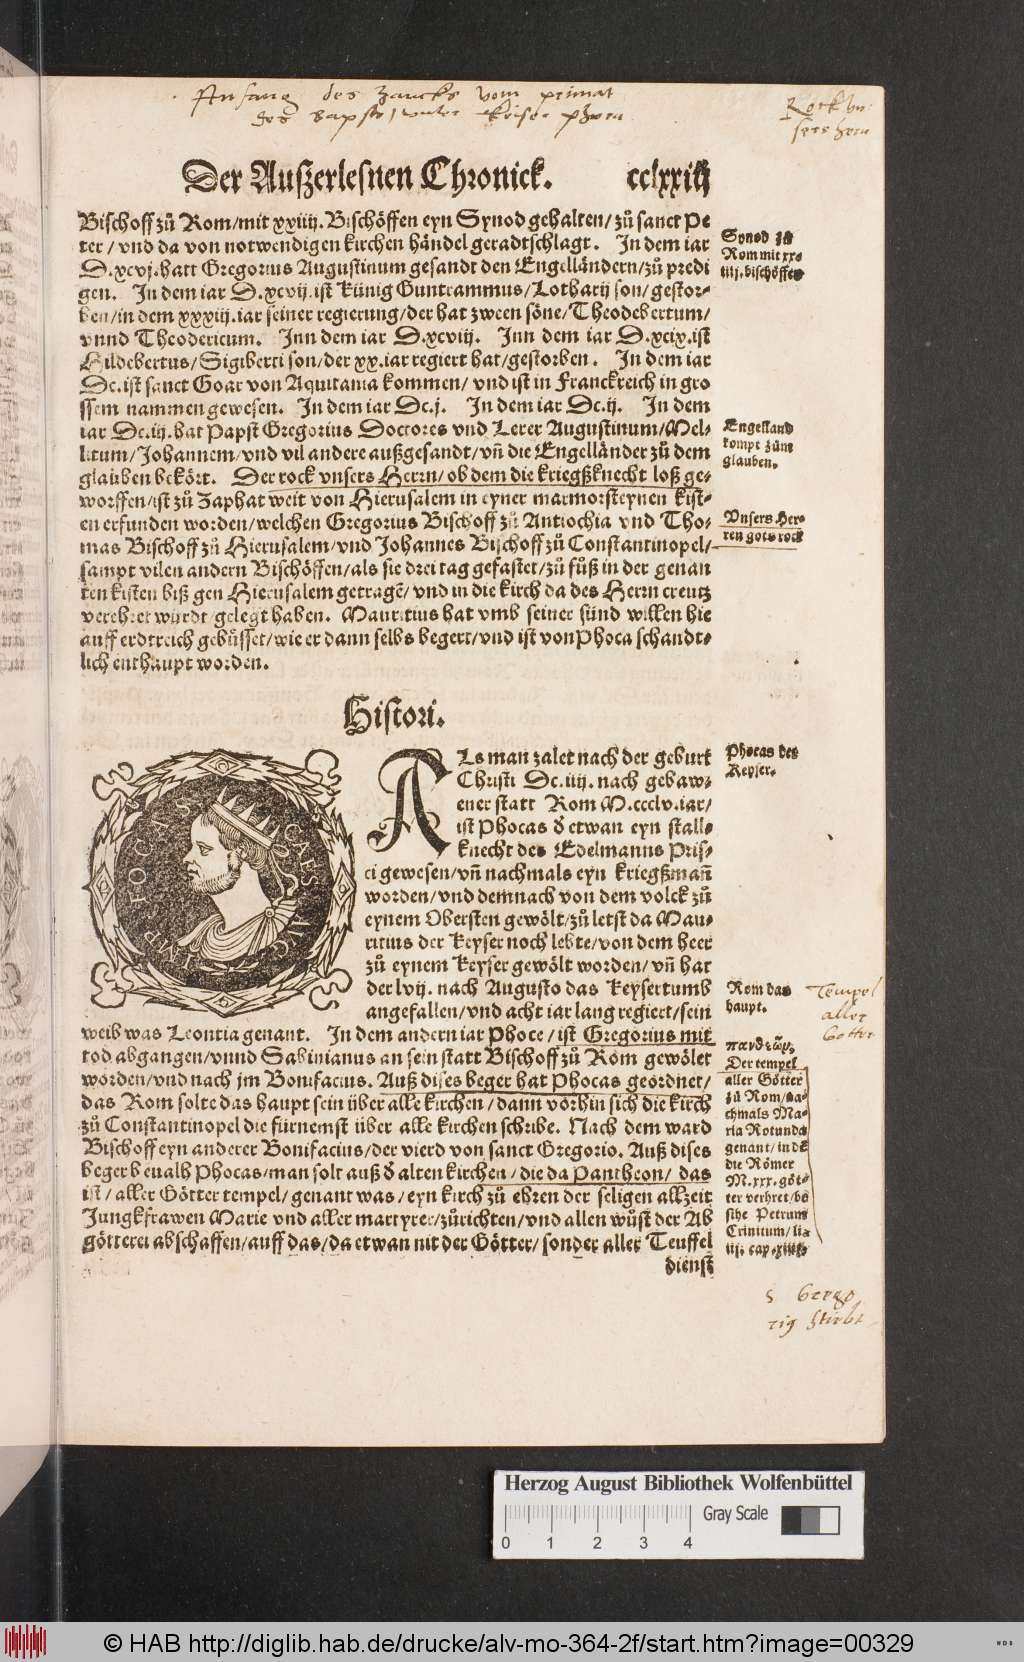 Anfang des Zancks vom primat
des Bapsts / unter Keiser Phoca
Rock vn-
sers hern
Der Auſzerleſnen Chronick.
Biſchoff zů Rom/mit xxiiij. Biſchöffen eyn Synod gehalten/zů ſanct Pe
ter/ vnd da von notwendigen kirchen händel geradtſchlagt. In dem iar
D.xcvj. hatt Gregorius Auguſtinum geſandt den Engelländern/zů predi
gen. In dem iar D.xcvij. iſt Künig Guntrammus/Lotharij ſon/geſtor-
ben/in dem xxxiij.iar ſeiner regierung/der hat zween ſöne/Theodebertum/
vnnd Theodericum. Inn dem iar D.xcviij. Inn dem iar D.xcix.iſt
Hildebertus/Sigiberti ſon/der xx.iar regiert hat/geſtorben. In dem iar
Dc.iſt ſanct Goar von Aquitania kommen/ vnd iſt in Franckreich in gro
ſſem nammen geweſen. In dem iar Dc.j. In dem iar Dc.ij. In dem
iar Dc.iij.hat Papſt Gregorius Doctores vnd Lerer Auguſtinum/Mel-
litum/Johannem/vnd vil andere außgeſandt/vñ die Engelländer zů dem
glauben bekört. Der rock vnſers Herrn/ ob dem die kriegßknecht loß ge-
worffen/iſt zů Zaphat weit von Hieruſalem in eyner marmorſteynen kiſt-
en erfunden worden/welchen Gregorius Biſchoff zů Antiochia vnd Tho-
mas Biſchoff zů Hieruſalem/vnd Johannes Biſchoff zů Conſtantinopel/
ſampt vilen andern Biſchöffen/als ſie drei tag gefaſtet/zů fůß in der genan
ten kiſten biß gen Hieruſalem getragẽ/ vnd in die kirch da des Herrn creutz
verehret wurdt gelegt haben. Mauritius hat vmb ſeiner ſünd willen hie
auff erdtreich gebüſſet/wie er dann ſelbs begert/vnd iſt von Phoca ſchandt-
lich enthaupt worden.
Synod zů
Rom mit xx-
iiij. biſchöffen
Engelland
kompt zům
glauben.
Vnſers Her-
ren gots rock
Hiſtori.
IMP FOCAS CAES AVG
ALs man zalet nach der geburt
Chriſti Dc.iiij. nach gebaw-
ener ſtatt Rom M.ccclv.iar/
iſt Phocas d̕ etwan eyn ſtall-
knecht des Edelmanns Priſ-
ci geweſen/vñ nachmals eyn kriegßmañ
worden/vnd demnach von dem volck zů
eynem Oberſten gewölt/zů letſt da Mau-
ritius der Keyſer noch lebte/von dem heer
zů eynem Keyſer gewölt worden/vñ hat
der lvij. nach Auguſto das Keyſertumb
angefallen/vnd acht iar lang regiert/ſein
weib was Leontia genant. In dem andern iar Phoce/iſt Gregorius mit
tod abgangen/vnnd Sabinianus an ſein ſtatt Biſchoff zů Rom gewölet
worden/vnd nach jm Bonifacius. Auß diſes beger hat Phocas geordnet/
das Rom ſolte das haupt ſein über alle kirchen/dann vorhin ſich die kirch
zů Conſtantinopel die fürnemſt über alle kirchen ſchribe. Nach dem ward
Biſchoff eyn anderer Bonifacius/der vierd von ſanct Gregorio. Auß diſes
beger beualh Phocas/man ſolt auß d̕ alten kirchen/die da Pantheon/ das
iſt/ aller Götter tempel/genant was/eyn kirch zů ehren der ſeligen allzeit
Jungkfrawen Marie vnd aller martyrer/zůrichten/vnd allen wůſt der Ab
götterei abſchaffen/auff das/da etwan nit der Götter/ſonder aller Teuffel
dienſt
Phocas der
Keyſer.
Rom das
haupt.
Tempel
aller
Gotter
Der tempel
aller Götter
zů Rom/na-
chmals Ma-
ria Rotunda
genant/in dẽ
die Römer
M.xxx. göt-
ter verhret/be
ſihe Petrum
Crinitum/li-
iij. cap.xiiij.
S Grego
rig stirbt
Herzog August Bibliothek Wolfenbüttel
Gray Scale
0 1 2 3 4
© HAB http://diglib.hab.de/drucke/alv-mo-364-2f/start.htm?image=00329
HAB